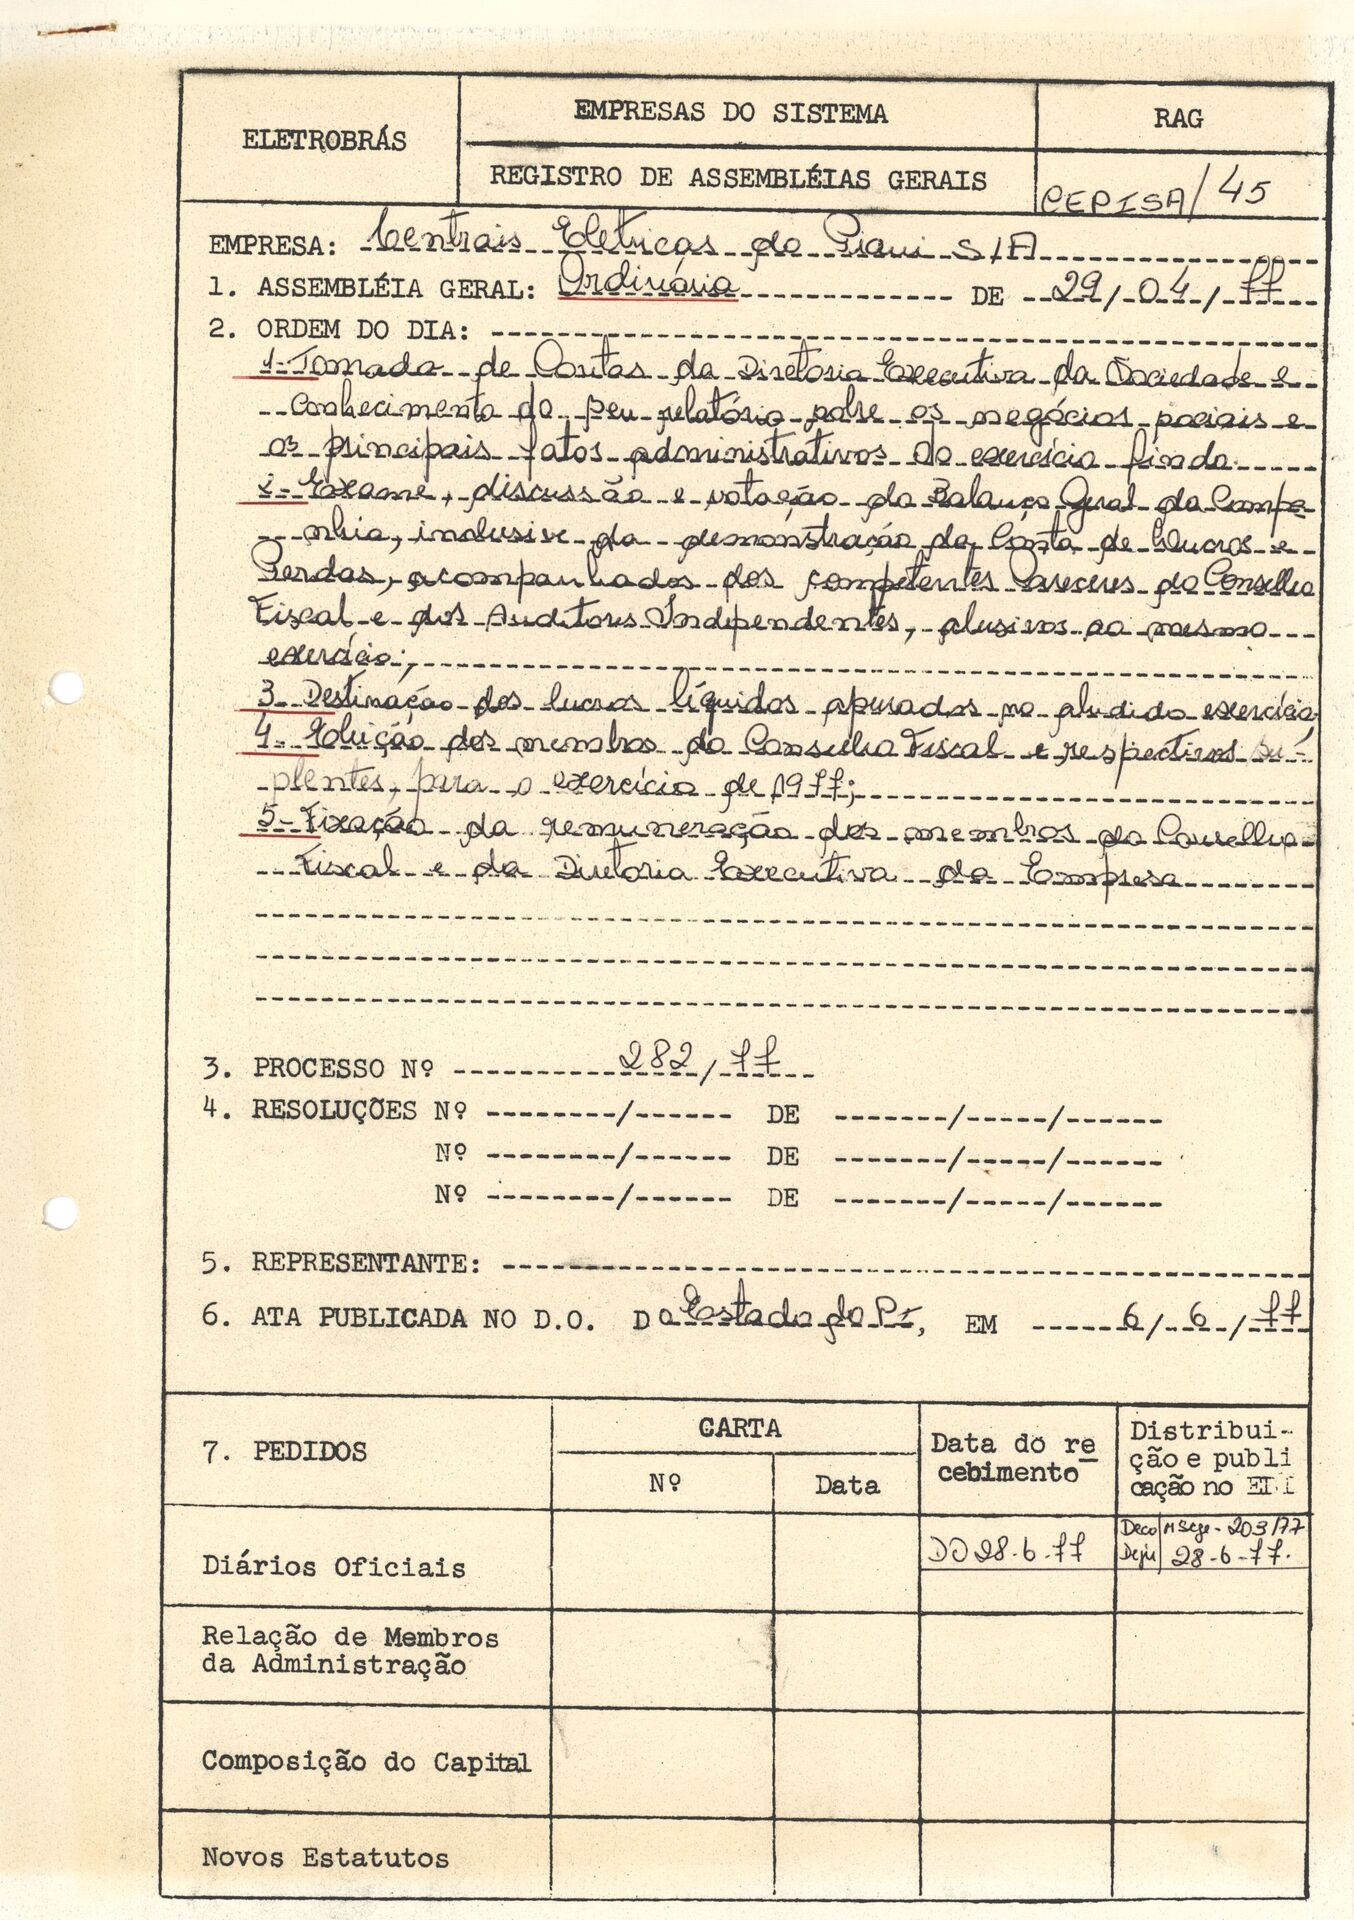 ELETROBRÁS
EMPRESAS DO SISTEMA
RAG
REGISTRO DE ASSEMBLÉIAS GERAIS
CEPISA/45
EMPRESA: Centrais Elétricas do Piaui S/A
1. ASSEMBLÉIA GERAL: Ordinária DE 29/04/77
2. ORDEM DO DIA:
1- Tomada de Contas da Diretoria Executiva da Sociedade e
conhecimento do seu relatório sobre os negócios sociais e
os principais fatos administrativos do exercício findo
2- Exame, discussão e votação do Balanço Geral da Compa-
nhia, inclusive da demonstração da Conta de Lucros e
Perdas, acompanhados dos competentes Pareceres do Conselho
Fiscal e dos Auditores Independentes, alusivos ao mesmo
exercício;
3- Destinação dos lucros líquidos apurados no aludido exercício
4- Eleição dos membros do Conselho Fiscal e respectivos su-
plentes, para o exercício de 1977;
5- Fixação da remuneração dos membros do Conselho
Fiscal e da Diretoria Executiva da Empresa
3. PROCESSO Nº 282/77
4. RESOLUÇÕES Nº / DE / /
Nº / DE / /
Nº / DE / /
5. REPRESENTANTE:
6. ATA PUBLICADA NO D.O. DO Estado do Pi, EM 6/6/77
7. PEDIDOS
CARTA
Nº
Data
Data do re
cebimento
Distribui-
ção e publi
cação no
Diários Oficiais
DO 28.6.77
Deco/ 203/77
Deju 28-6-77.
Relação de Membros
da Administração
Composição do Capital
Novos Estatutos